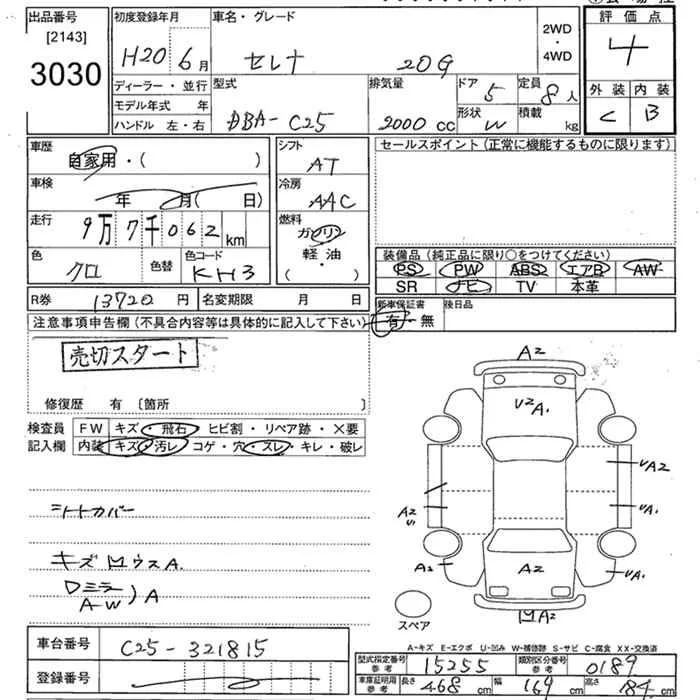 出品番号
[2143]
3030
初度登録年月
H20年6月
車名・グレード
セレナ 20G
2WD
・
4WD
評価点
4
外装 内装
C B
ディーラー・並行
モデル年式 年
ハンドル 左・右
型式
DBA-C25
排気量
2000cc
ドア
5
形状
W
定員
8人
積載
kg
車歴
自家用・( )
車検
年 月( 日)
走行
9万7千062km
色
クロ
色替
色コード
KH3
シフト
AT
冷房
AAC
燃料
ガソリン
軽・油
( )
セールスポイント(正常に機能するものに限ります)
装備品(純正品に限り○をつけてください)
PS PW ABS エアB AW
SR ナビ TV 本革
R券 13720円 名変期限 月 日
新車保証書
有・無
後日品
注意事項申告欄(不具合内容等は具体的に記入して下さい)
売切スタート
修復歴 有 〔箇所 〕
検査員 FW キズ・飛石・ヒビ割・リペア跡・×要
記入欄 内装 キズ・汚レ・コゲ・穴・スレ・キレ・破レ
シートカバー
キズ
Dミラー
AW)A
A2
U2 A1
UA2
A2
U1
UA1
A2
A2
UA1
A2
スペア
車台番号 C25-321815
登録番号
A-キズ E-エクボ U-凹み W-補修跡 S-サビ C-腐食 XX-交換済
型式指定番号 参考 15255 類別区分番号 参考 0189
車庫証明用 参考 長さ 468cm 幅 169cm 高さ 184cm